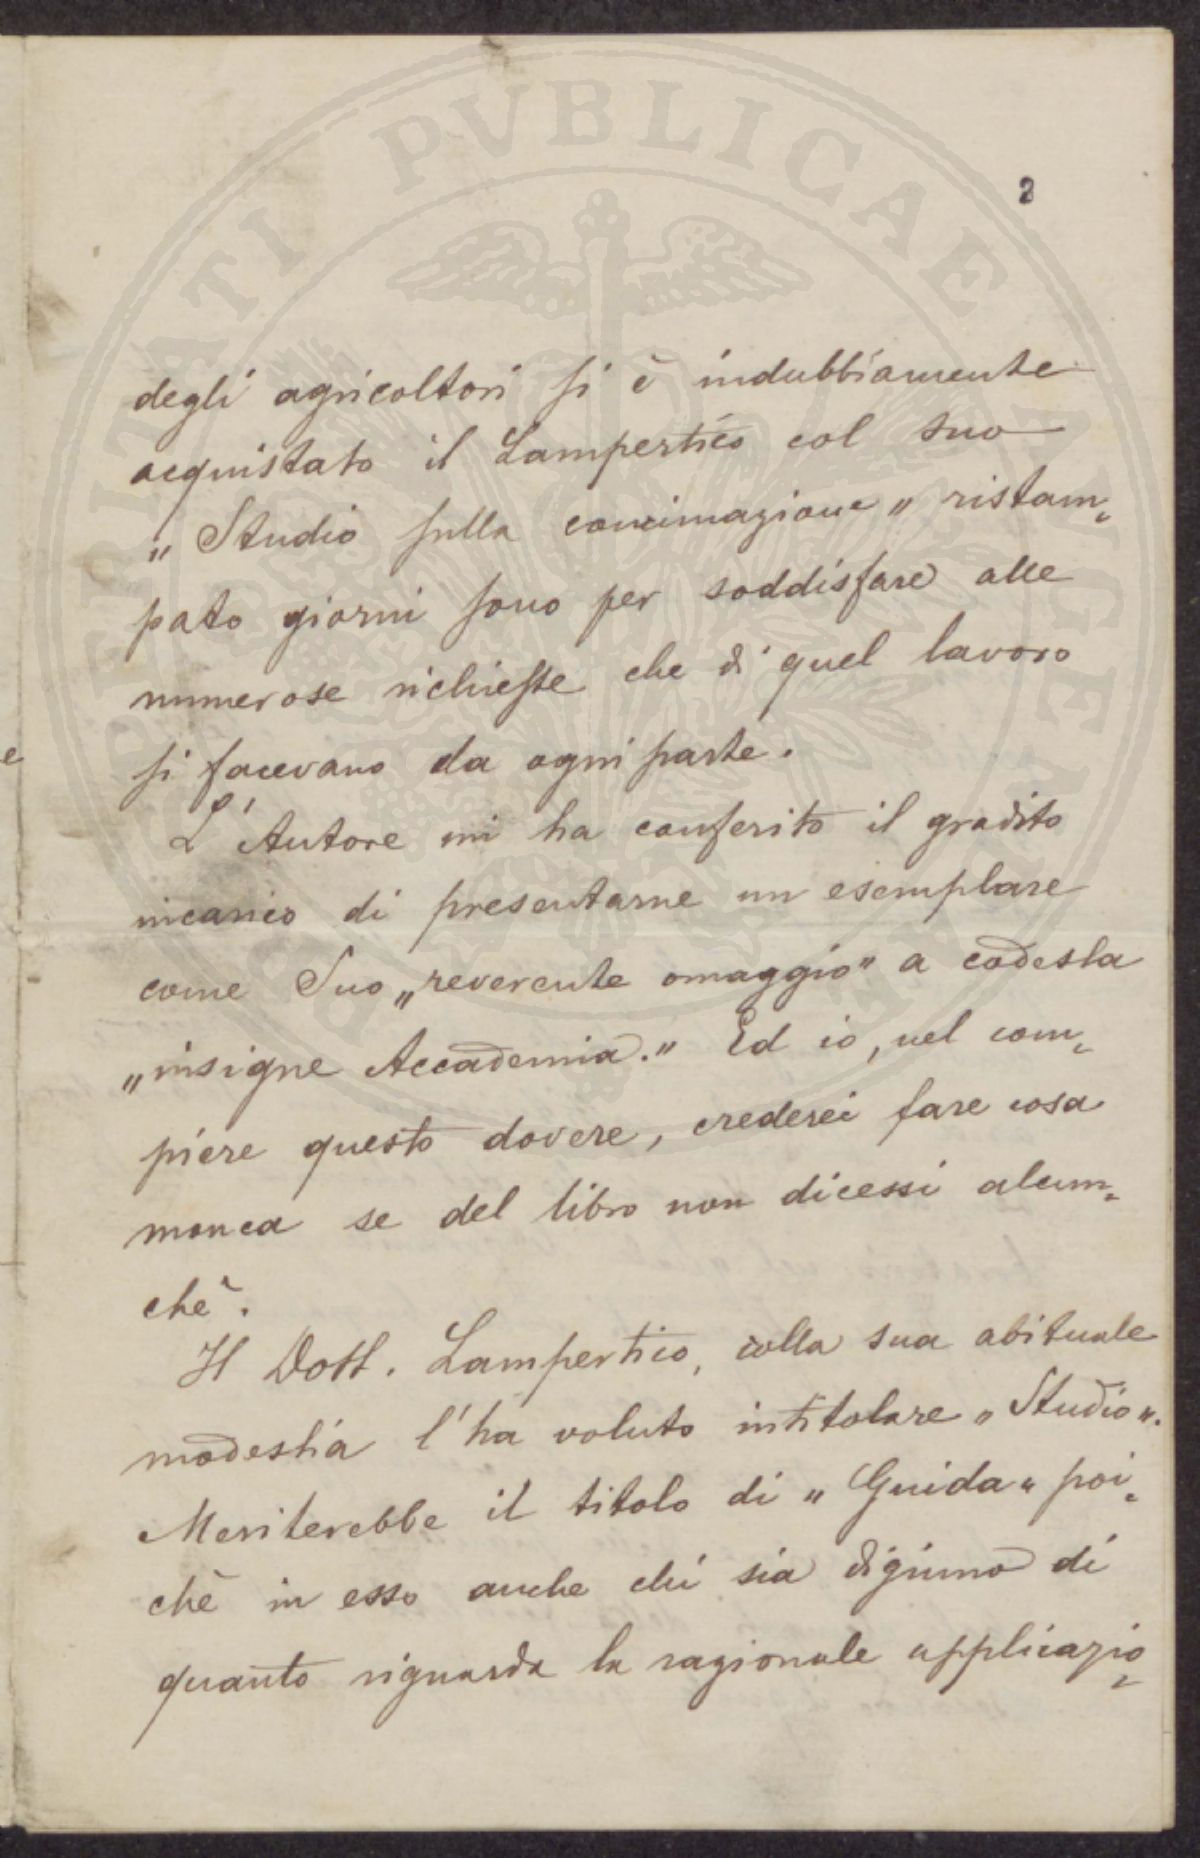 PROSPERITATI PVBLICAE AVGENDAE
2
degli agricoltori si è indubbiamente
acquistato il Lampertico col suo
„ Studio sulla concimazione „ ristam-
pato giorni sono per soddisfare alle
numerose richieste che di quel lavoro
si facevano da ogni parte.
L'Autore mi ha conferito il gradito
incarico di presentarne un esemplare
come Suo „reverente omaggio" a codesta
„insigne Accademia." Ed io, nel com-
piere questo dovere, crederei fare cosa
monca se del libro non dicessi alcun-
chè.
Il Dott. Lampertico, colla sua abituale
modestia l'ha voluto intitolare „ Studio ".
Meriterebbe il titolo di „ Guida „ poi-
chè in esso anche chi sia digiuno di
quanto riguarda la razionale applicazio-